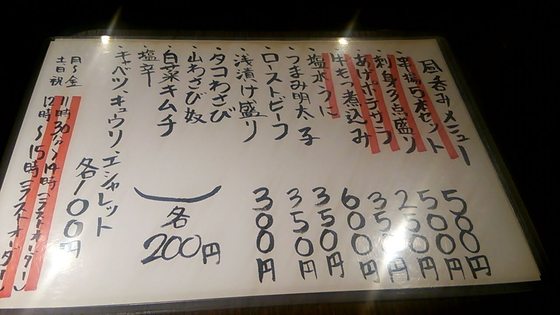 昼呑みメニュー
・串揚5本セット 500円
・刺身3点盛り 500円
・あげポテサラ 250円
・牛もつ煮込み 350円
・塩水うに 600円
・つまみ明太子 350円
・ローストビーフ 350円
・浅漬け盛り 300円
・タコわさび
・山わさび奴
・白菜キムチ
・塩辛
各200円
・キャベツ・キュウリ・エシャレット 各100円
月〜金 11時30分〜14時(ラストオーダー)
土日祝 12時〜15時(ラストオーダー)